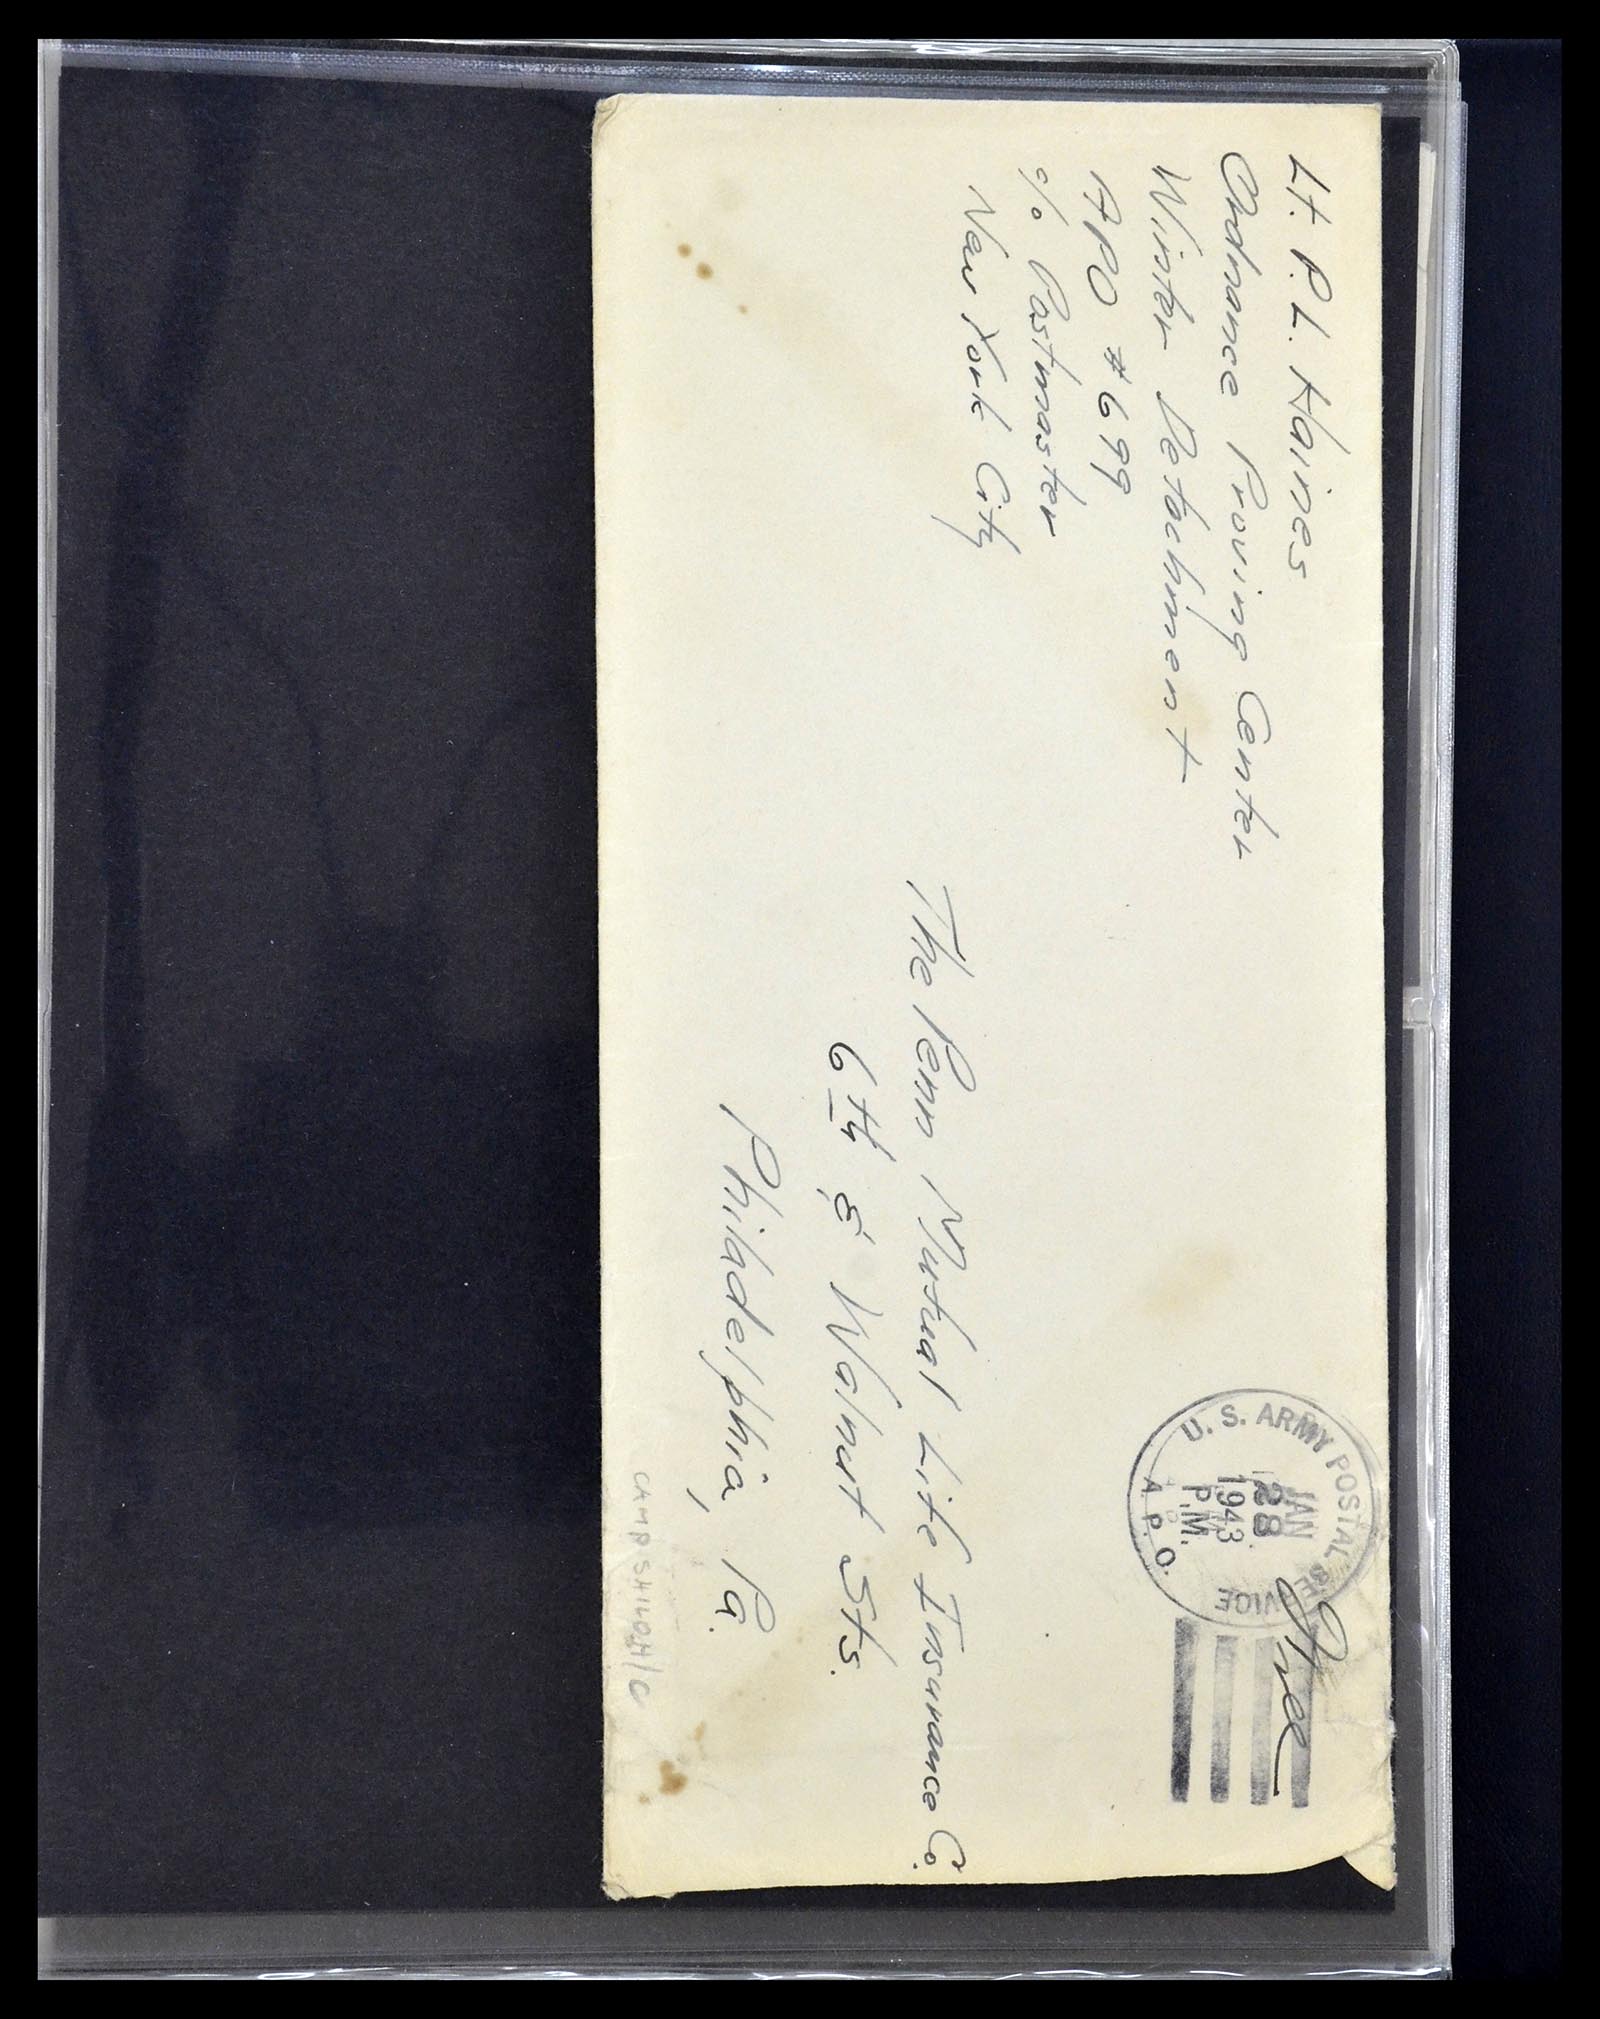 Lt. P. L. Haines
Ordnance Proving Center
Winter Detachment
APO #699
℅ Postmaster
New York City
U. S. ARMY POSTAL SERVICE
JAN
28
1943
P.M.
A. P. O.
Free
The Penn Mutual Life Insurance Co.
6th & Walnut Sts.
Philadelphia, Pa.
CAMP SHILOH/C